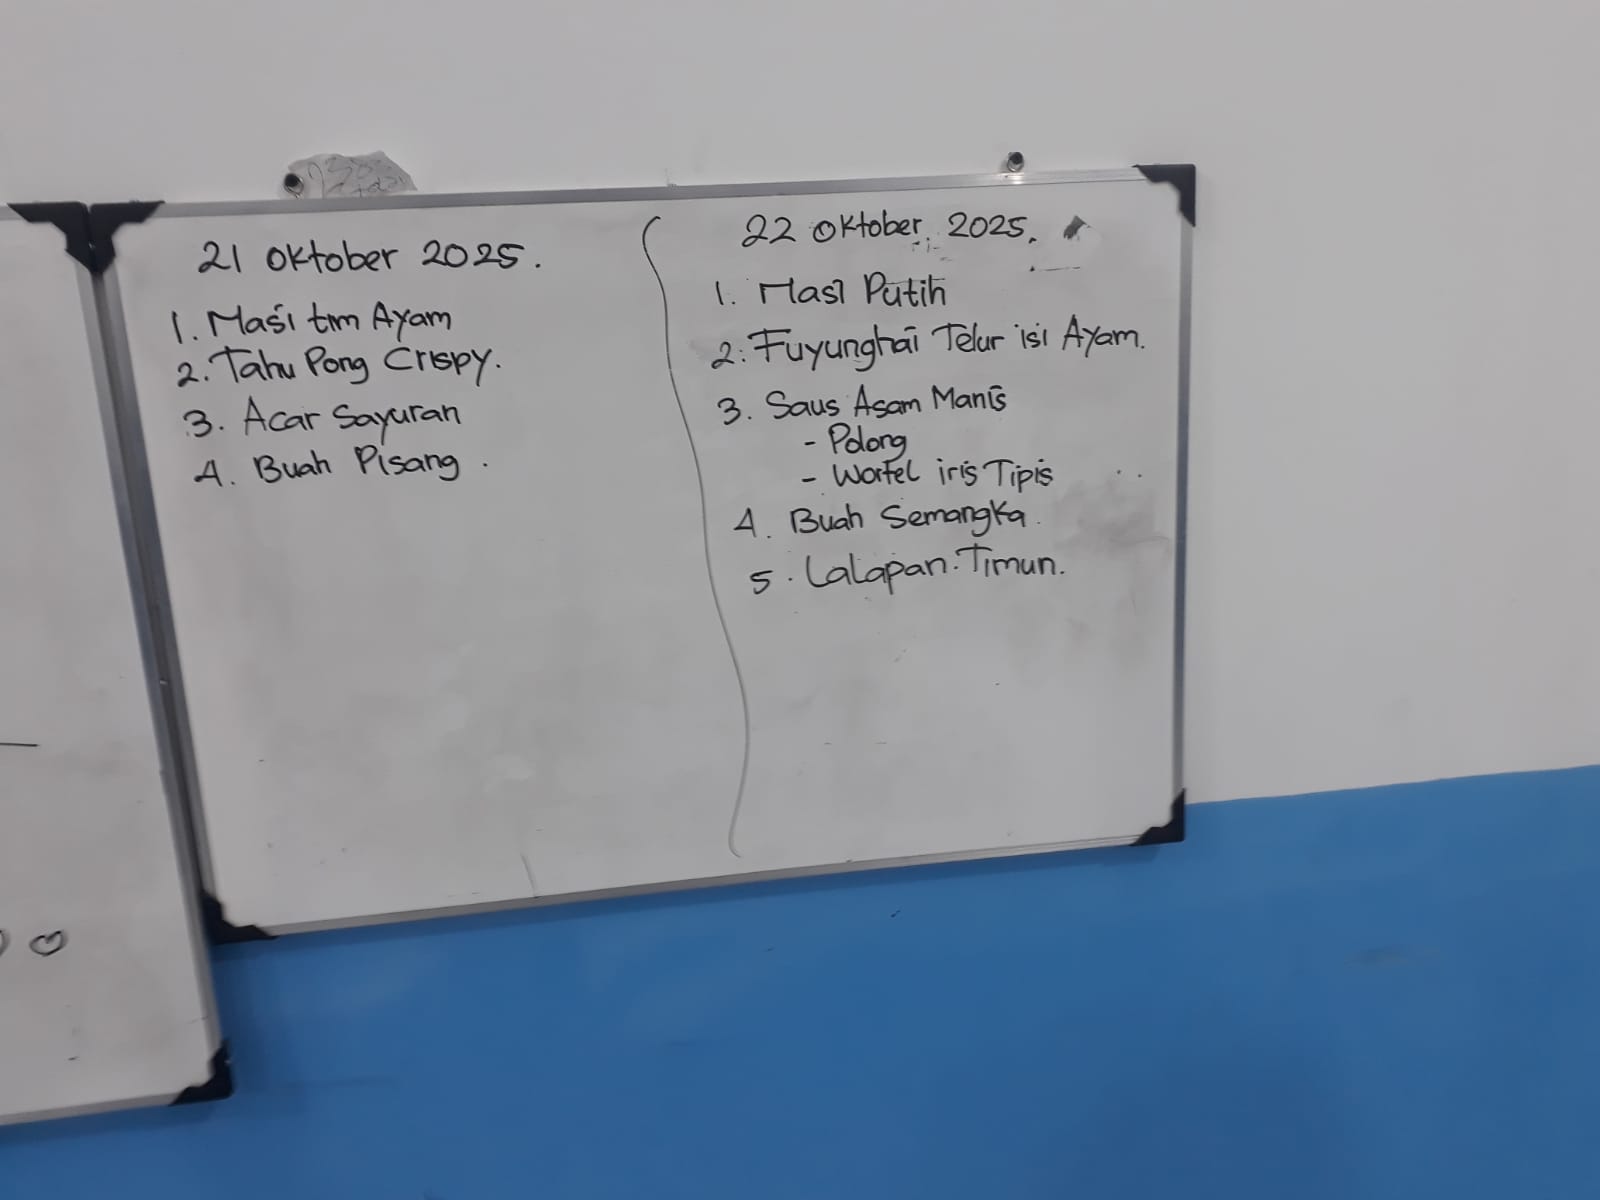 21 Oktober 2025.
1. Nasi tim Ayam
2. Tahu Pong Crispy.
3. Acar Sayuran
4. Buah Pisang.
22 Oktober 2025.
1. Nasi Putih
2. Fuyunghai Telur isi Ayam.
3. Saus Asam Manis
- Polong
- Wortel iris Tipis
4. Buah Semangka.
5. Lalapan Timun.